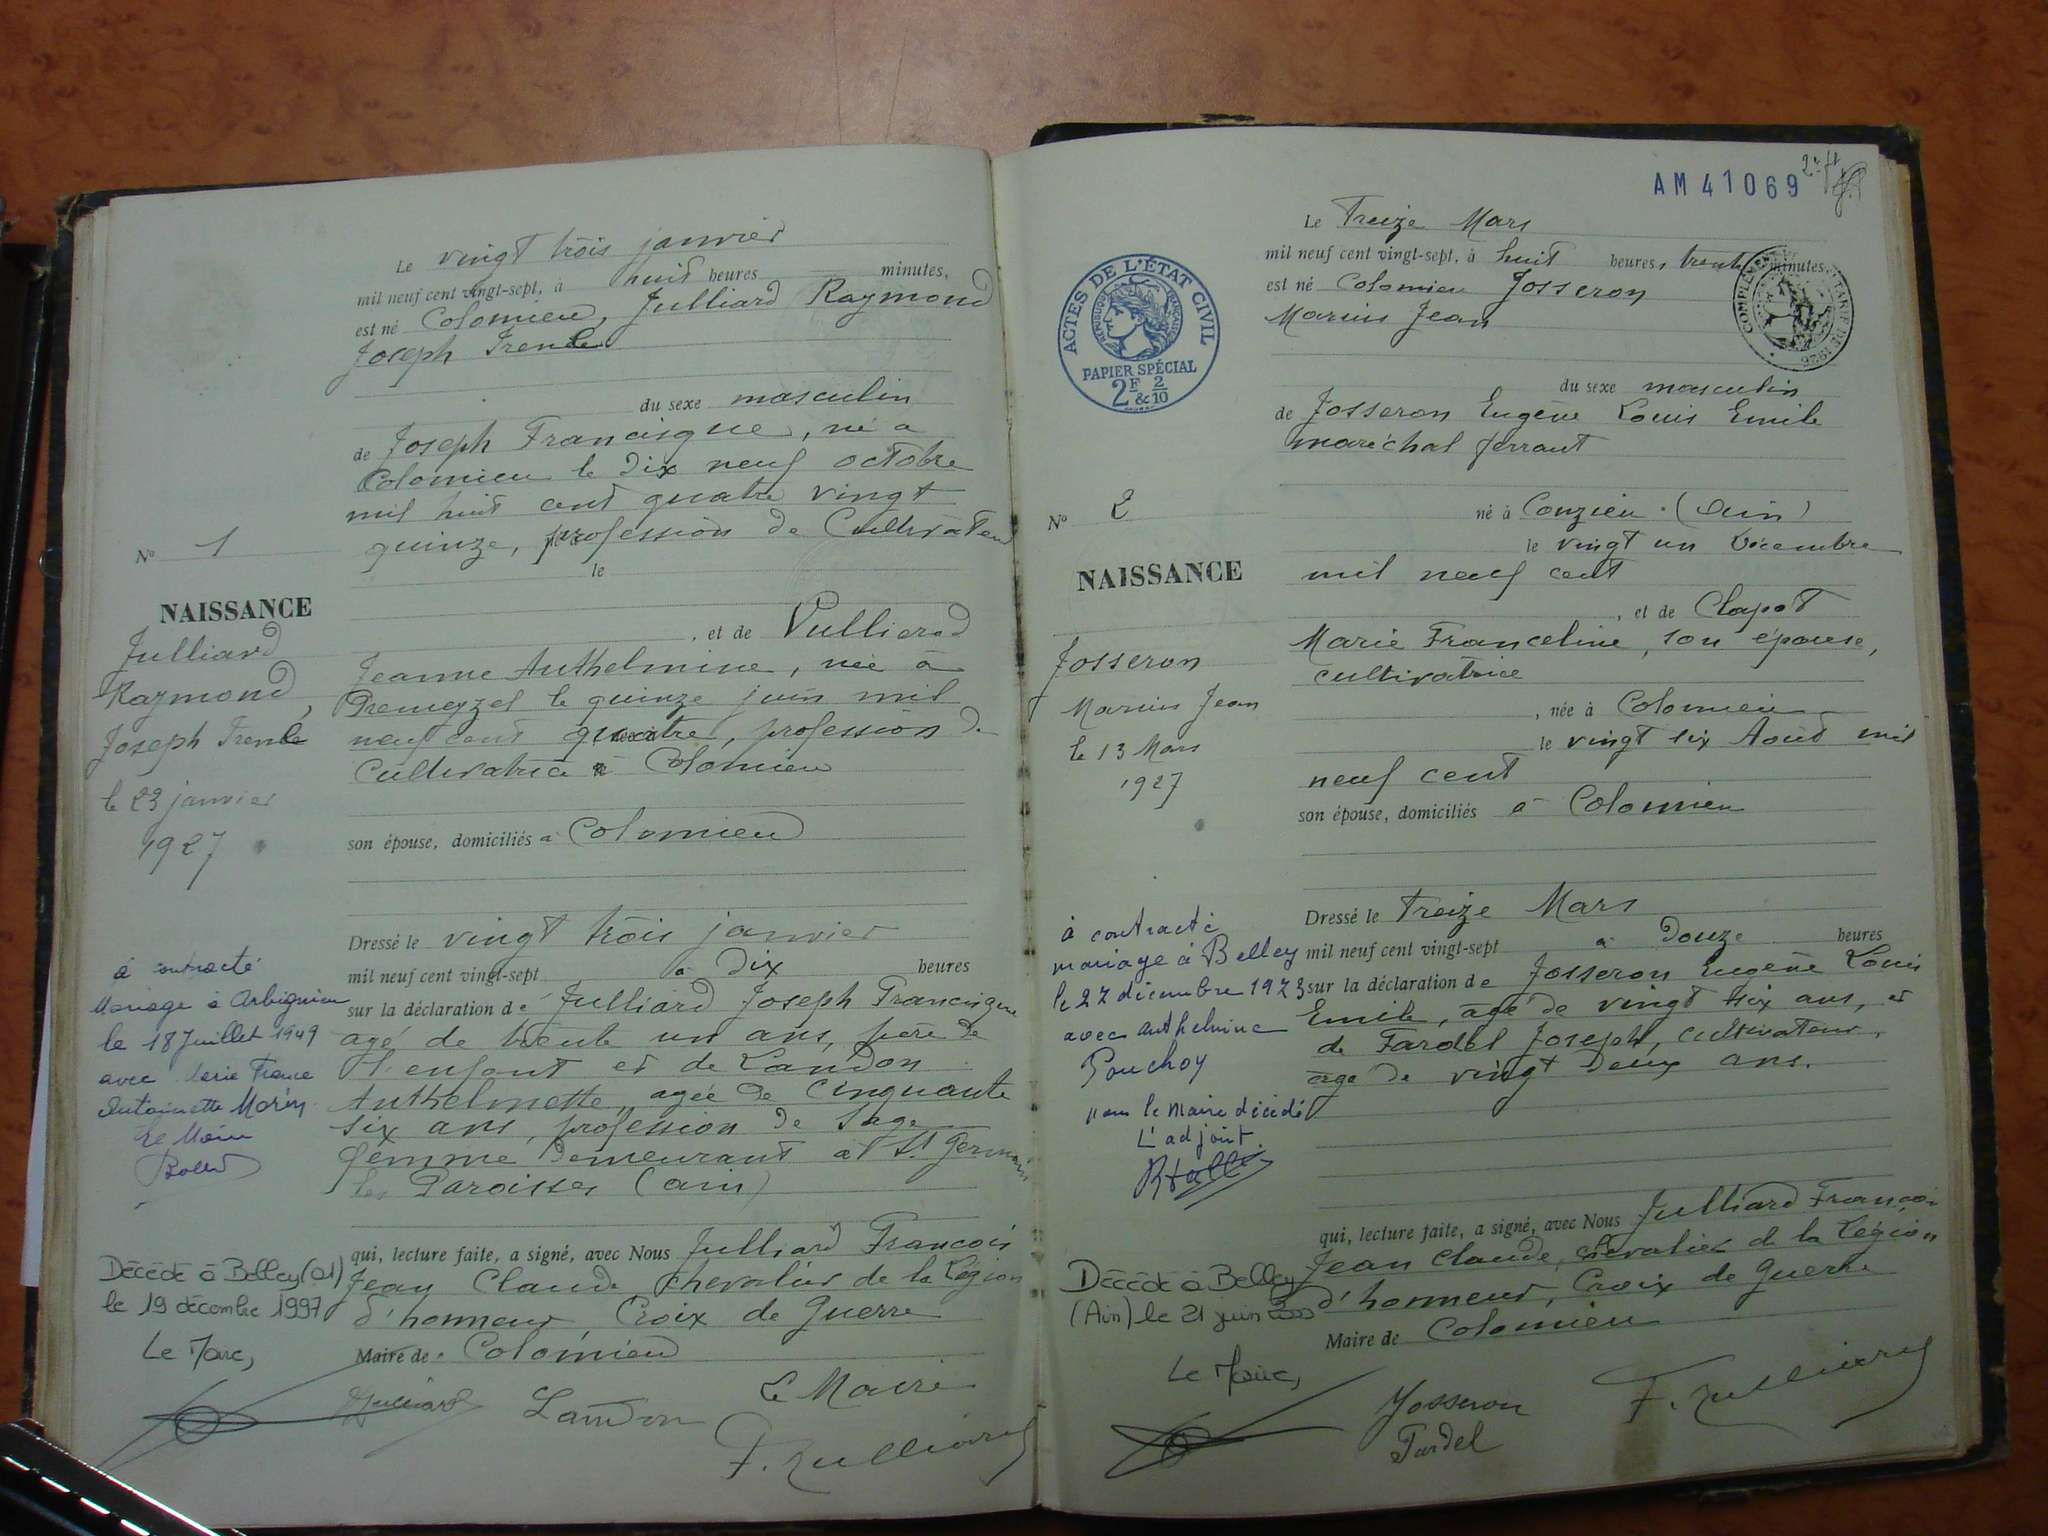 Le vingt trois janvier
mil neuf cent vingt-sept, à huit heures minutes,
est né Colomieu, Julliard Raymond
Joseph
du sexe masculin
de Joseph Francisque, né a
Colomieu le dix neuf octobre
mil huit cent quatre vingt
quinze, profession de Cultivateur
le
, et de Vullierod
Jeanne Anthelmine, née à
Premeyzel le quinze juin mil
neuf cent quatre, profession de
Cultivatrice à Colomieu
son épouse, domiciliés a Colomieu
Dressé le vingt trois janvier
mil neuf cent vingt-sept à dix heures
sur la déclaration de Julliard Joseph Francisque
agé de trente un ans, père de
l'enfant et de Landon
Anthelmette, agée de Cinquante
six ans, profession de Sage
femme demeurant à St Germain
les Paroisses (ain)
qui, lecture faite, a signé, avec Nous Julliard François
Jean Claude chevalier de la Légion
d'honneur, Croix de Guerre
Maire de Colomieu
Julliard Landon Le Maire
F. Julliard
N° 1
NAISSANCE
Julliard
Raymond,
Joseph
le 23 janvier
1927
à contracté
Mariage à Arbignieu
le 18 Juillet 1949
avec Marie France
Antoinette
Le Maire
Décédé à Belley (01)
le 19 décembre 1997
Le Maire,
AM 41069
Le Treize Mars
mil neuf cent vingt-sept, à huit heures, trente minutes,
est né Colomieu Josseron
Marius Jean
du sexe masculin
de Josseron Eugène Louis Emile
maréchal ferrant
né à Conzieu (Ain)
le vingt un Décembre
mil neuf cent
, et de Clapot
Marie Franceline, son épouse,
cultivatrice
, née à Colomieu
le vingt six Août mil
neuf cent
son épouse, domiciliés à Colomieu
Dressé le Treize Mars
mil neuf cent vingt-sept à Douze heures
sur la déclaration de Josseron Eugène Louis
Emile, âgé de vingt six ans, et
de Fardel Joseph, cultivateur,
âgé de vingt deux ans.
qui, lecture faite, a signé, avec Nous Julliard François
Jean Claude, chevalier de la Légion
d'honneur, Croix de Guerre
Maire de Colomieu
Josseron F. Julliard
Fardel
ACTES DE L'ÉTAT CIVIL
RÉPUBLIQUE FRANÇAISE
PAPIER SPÉCIAL
2F & 2/10
COMPLÉMENT TARIF DE 1926
N° 2
NAISSANCE
Josseron
Marius Jean
le 13 Mars
1927
à contracté
mariage à Belley
le 27 décembre 1973
avec Anthelmine
Pouchoy
pour le Maire décédé
L'adjoint.
Décédé à Belley
(Ain) le 21 juin
Le Maire,